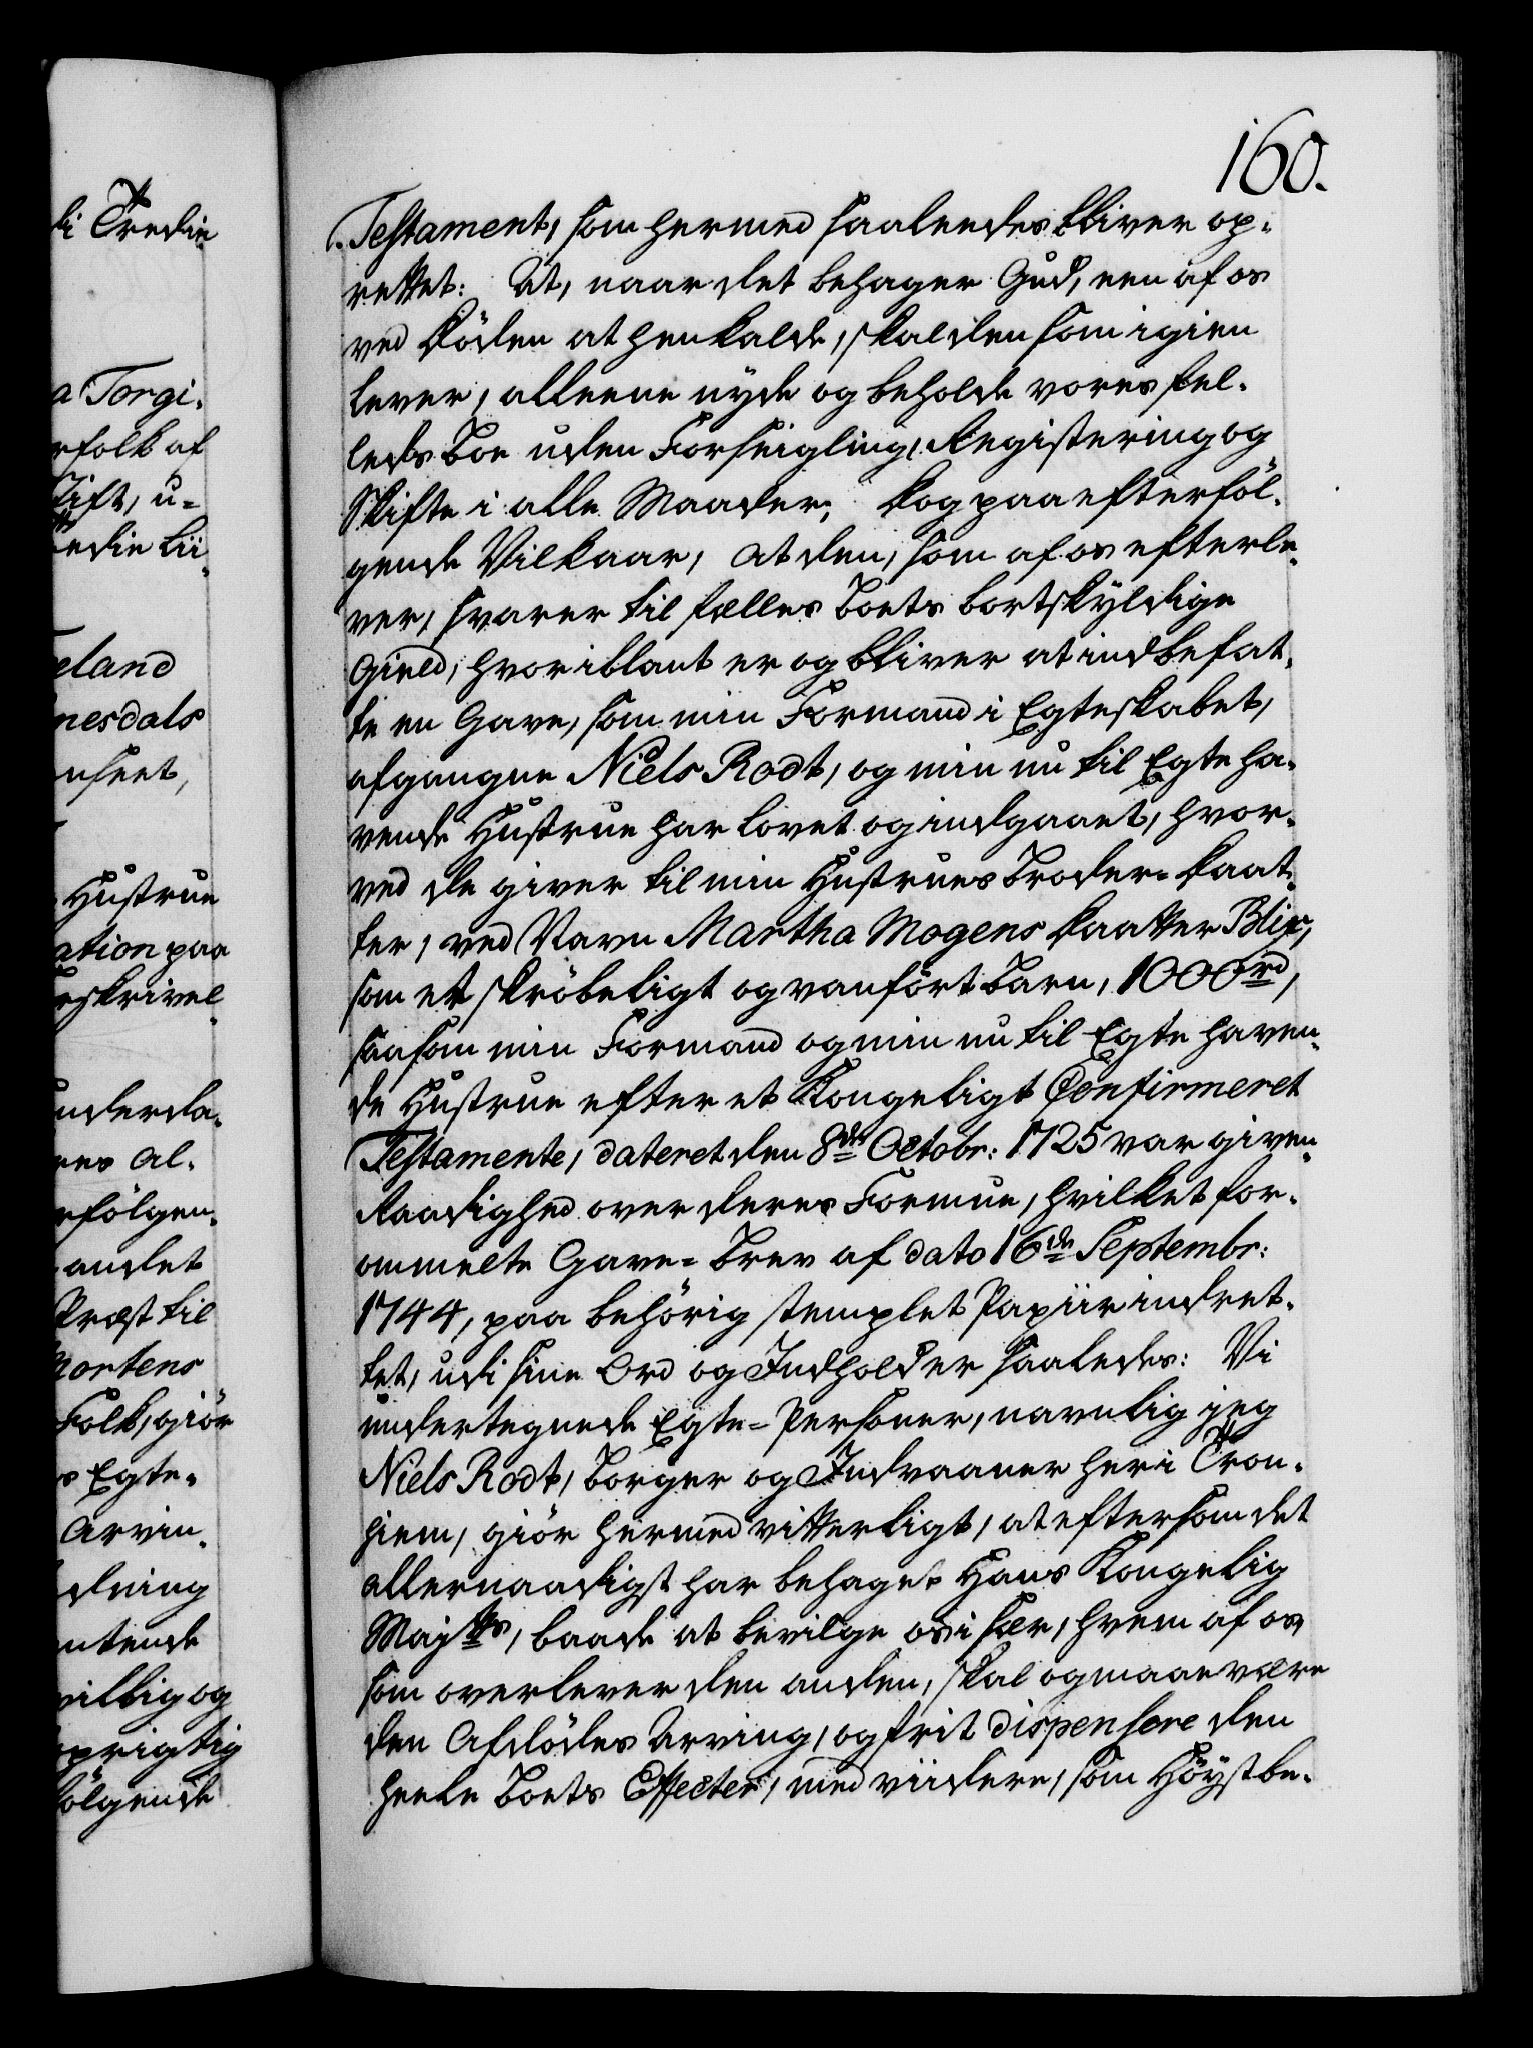 160.
di Tredie
a Torgi-
rfolk af
Tift, u-
redie Lii-
eland
nesdals
nseet,
Hustrue
ation paa
eskrivel-
underda-
res al-
rfölgen-
andet
Præst til
Mortens
Folk, giör
s Egte-
Arvin-
dning
ntende
villig og
oprigtig
fölgende
Testament, som hermed saaleedes bliver op-
rettet: At, naar det behager Gud, een af os
ved Döden at henkalde, skal den som igien
lever, alleene nyde og beholde vores fel-
leds Boe uden Forseigling, Registering og
Skifte i alle Maader; Dog paa efterföl-
gende Vilkaar, at den, som af os efterle-
ver, svarer til fælles Boets bortskyldige
Gield, hvoriblant er og bliver at indbefat-
te en Gave, som min Formand i Egteskabet,
afgangne Niels Rodt, og min nu til Egte ha-
vende Hustrue har lovet og indgaaet, hvor-
ved de giver til min Hustrues Broder-Daat-
ter, ved Navn Martha Mogens Daatter Blix,
som et skröbeligt og vanfört Barn, 1000 rd,
saasom min Formand og min nu til Egte haven-
de Hustrue efter et Kongeligt Confirmeret
Testamente, dateret den 8de Octobr: 1725 var given
Raadighed over deres Formue, hvilket for-
ommelte Gave-Brev af dato 16de Septembr:
1744, paa behörig stemplet Papiir indret-
tet, udi sine Ord og Indhold er saaledes: Vi
undertegnede Egte-Personer, navnlig jeg
Niels Rodt, Borger og Indvaaner her i Tron-
hiem, giör hermed vitterligt, at eftersom det
allernaadigst har behaget Hans Kongelig
Majts, baade at bevilge os i sær, hvem af os
som overlever den anden, skal og maae være
den Afdödes Arving, og frit dispensere den
heele Boets Effecter, med viidere, som Höystbe-